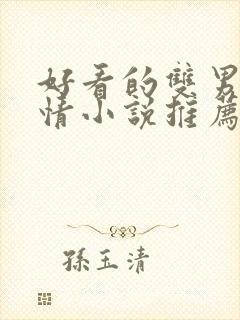 好看的雙男
情小說推薦
孫玉清